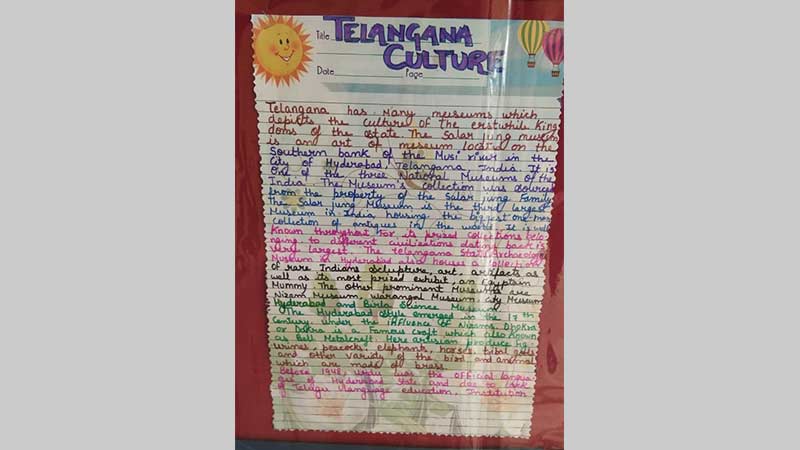 Title TELANGANA
CULTURE
Date Page
Telangana has Many museums which
depicts the culture of the erstwhile King
doms of the state The Salar Jung museum
is an art of meseum located on the
Southern bank of the Musi river in the
City of Hyderabad, Telangana, India. It is
One of the three National Museums of the
India. The Museum's collection was sourced
from the property of the Salar Jung Family
The Salar Jung Museum is the third largest
Museum in India housing the biggest one man
collection of antiques in the world. It is well
Known throughout for its prized collections belo
nging to different civilizations dating back is
very largest. The telangana State Archaeology
Museum in Hyderabad also houses a collection
of rare Indians sclupture, art, artifacts as
well as its most prized exhibit, an Egyptain
Mummy The other prominent Museums are
Nizam Museum, Warangal Museum, city Museum
Hyderabad and Birla Science Museum.
The Hyderabad style emerged in the 17th
Century under the influence of Nizams. Dhokra
or Dokra is a Famous craft which also known
as Bell Metalcraft. Here artisian produce fig
urines, peacocks, elephants, horses, tribal gods
and other variety of the bird and animal
which are made of brass.
Before 1948, urdu was the official langu
age of Hyderabad State and due to lack
of Telugu language education, Institution